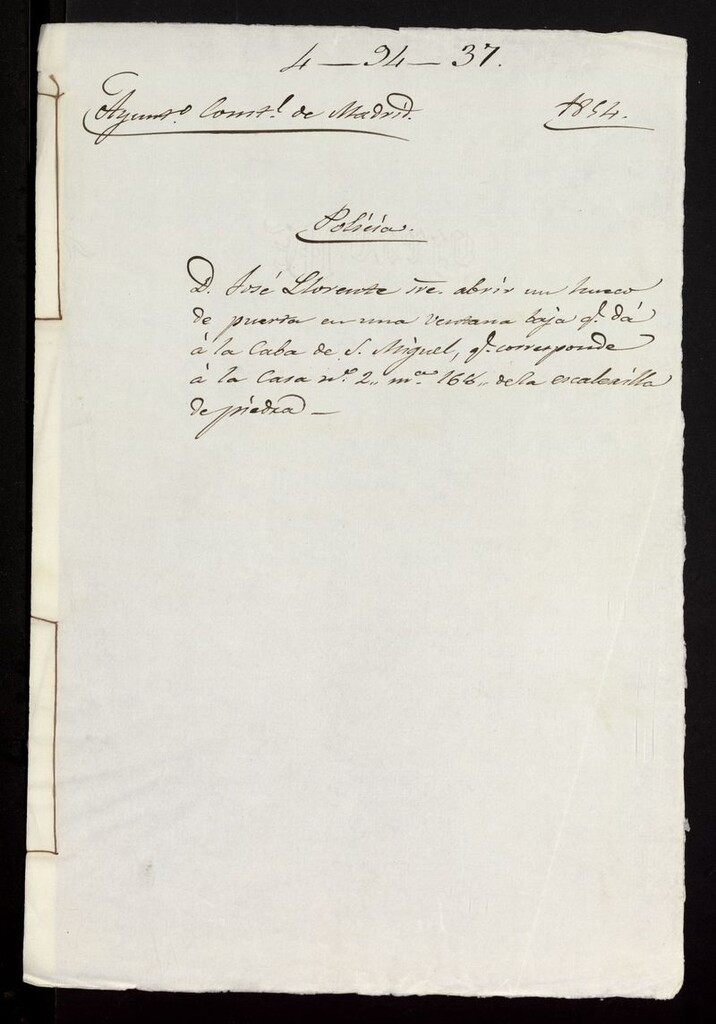 4 — 94 — 37.
Ayunt.º Const.l de Madrid. 1854.
Policía.
D. José Llorente sre. abrir un hueco
de puerta en una ventana baja q.e dá
á la Caba de S. Miguel, q.e corresponde
á la Casa n.º 2,, m.na 168,, de la escalerilla
de piedra —